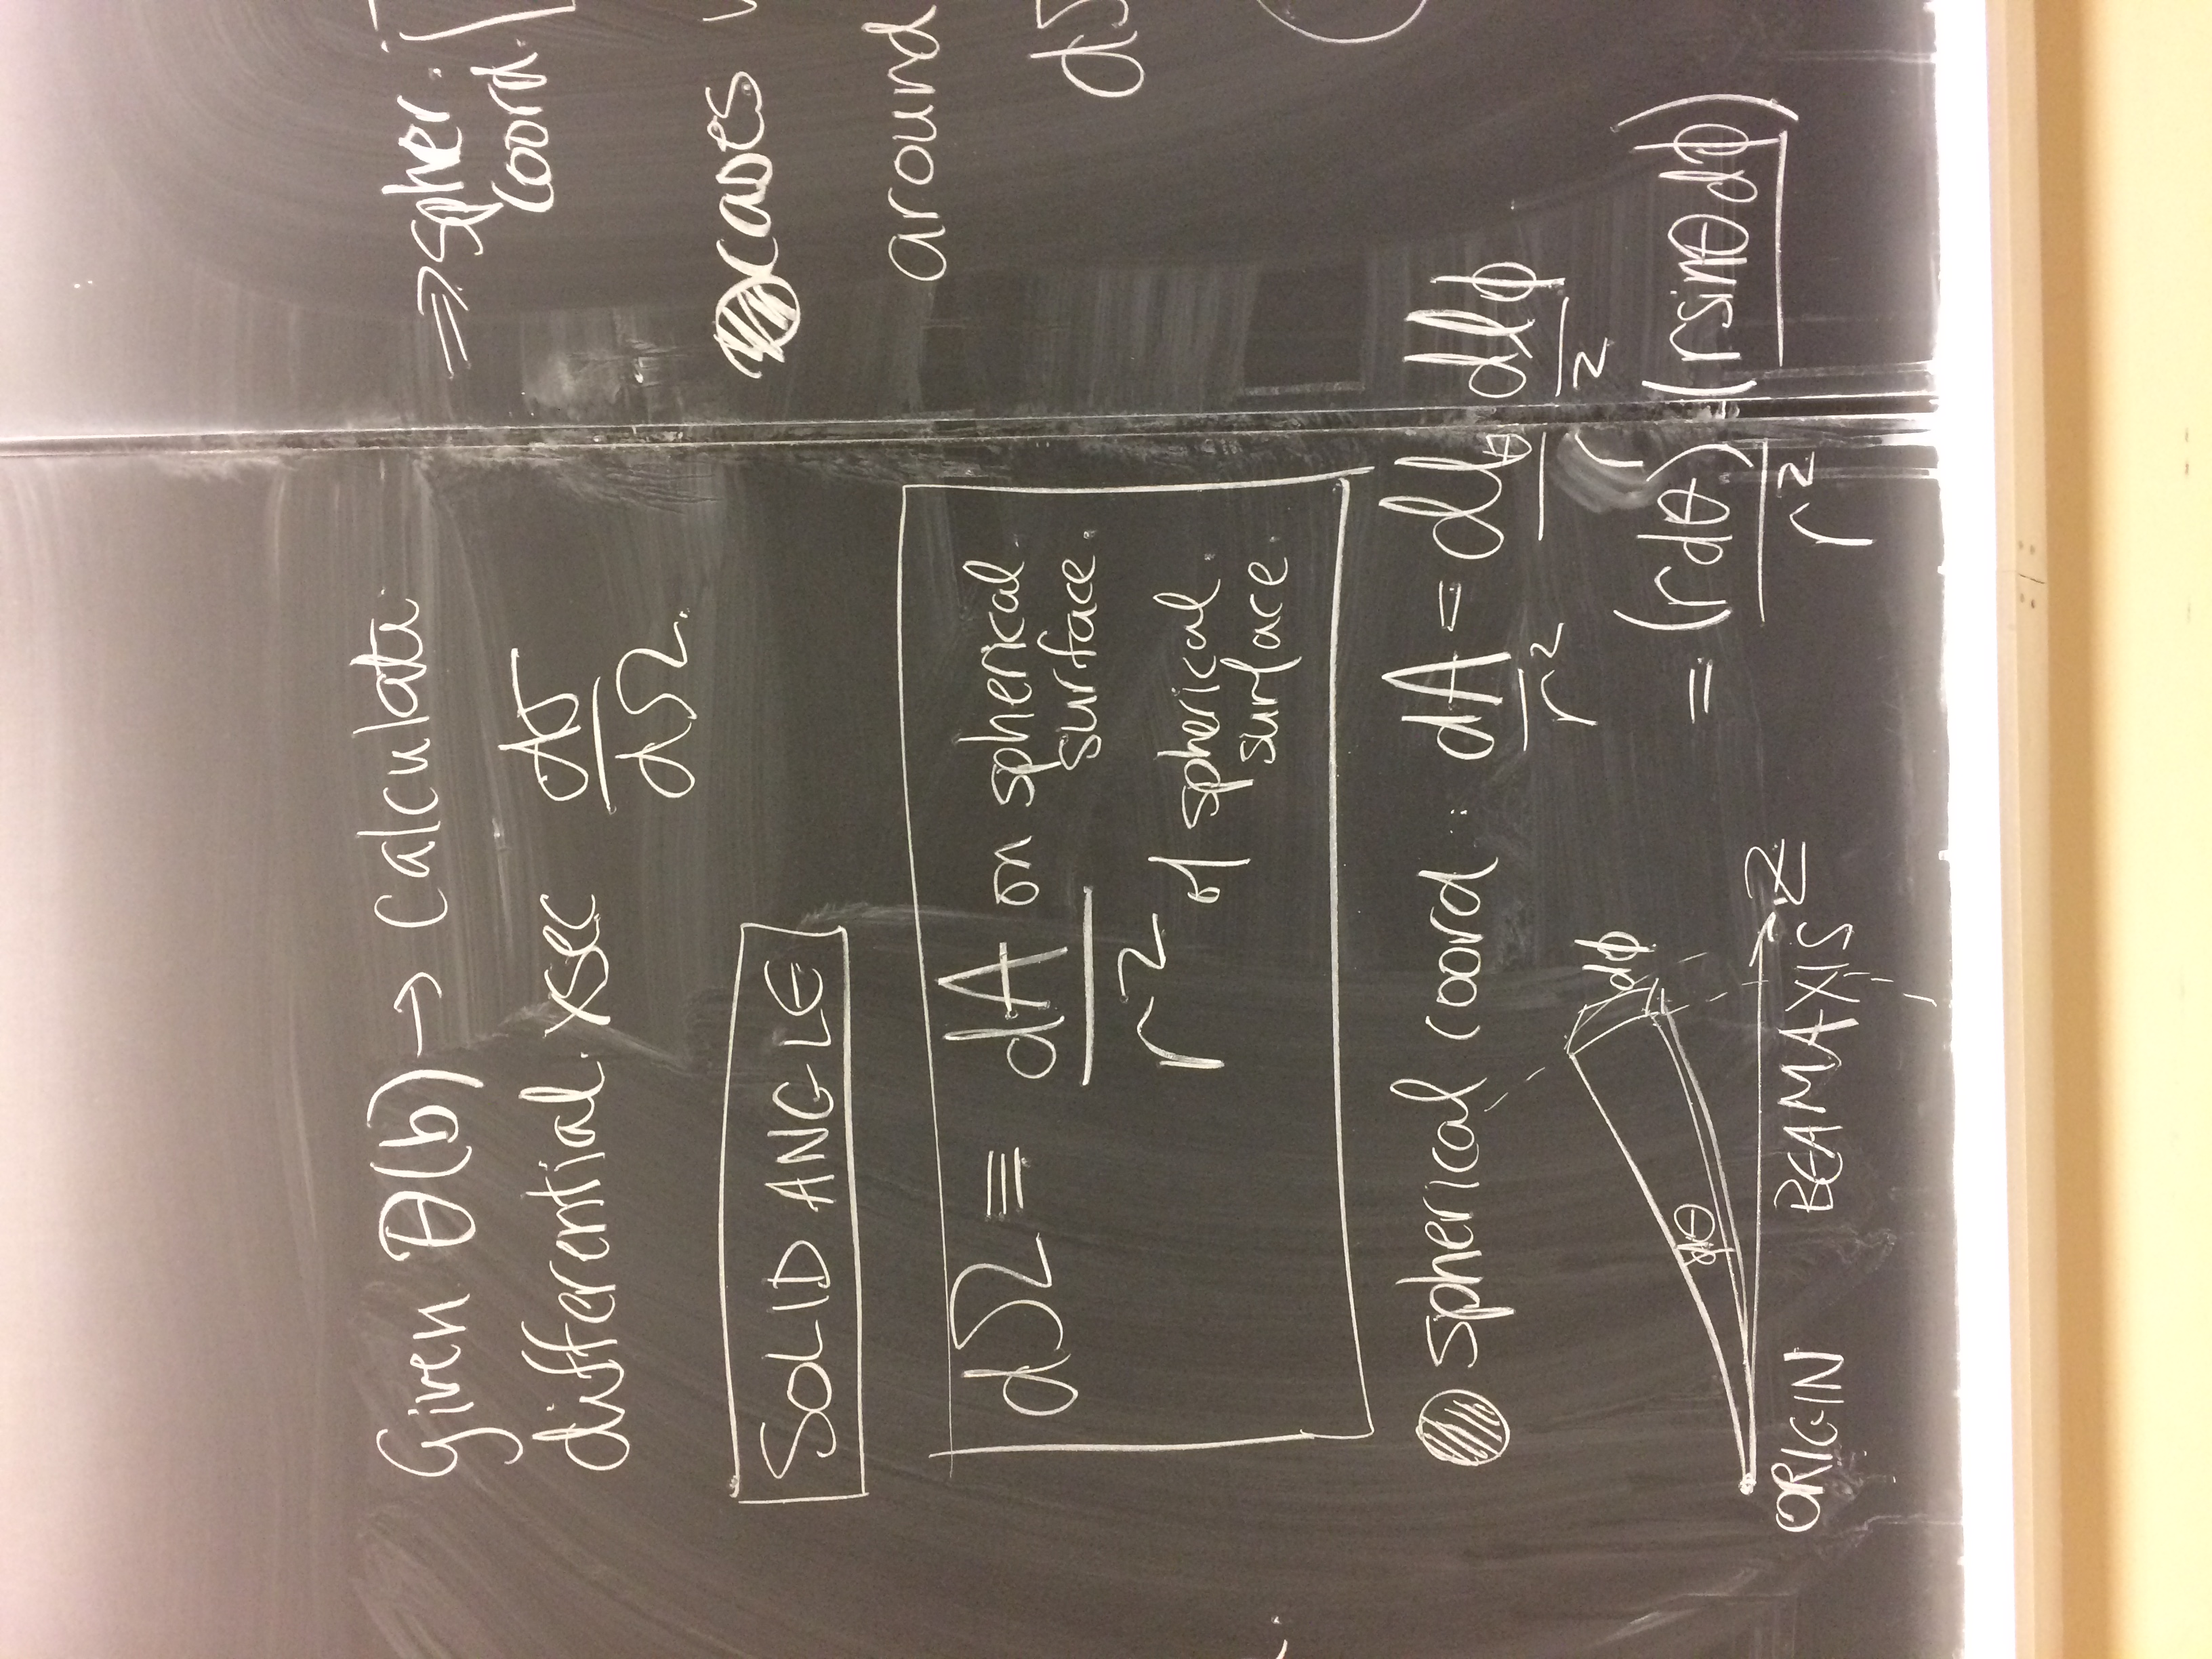 Given θ(b) → calculate
differential xsec dσ/dΩ.
SOLID ANGLE
dΩ ≡ dA on spherical surface. / r² of spherical surface.
spherical coord: dA/r² = dlθ dlφ / r²
= (rdθ)(rsinθdφ) / r²
dφ
dθ
Z
ORIGIN BEAM AXIS
⇒ spher.
coord.
around